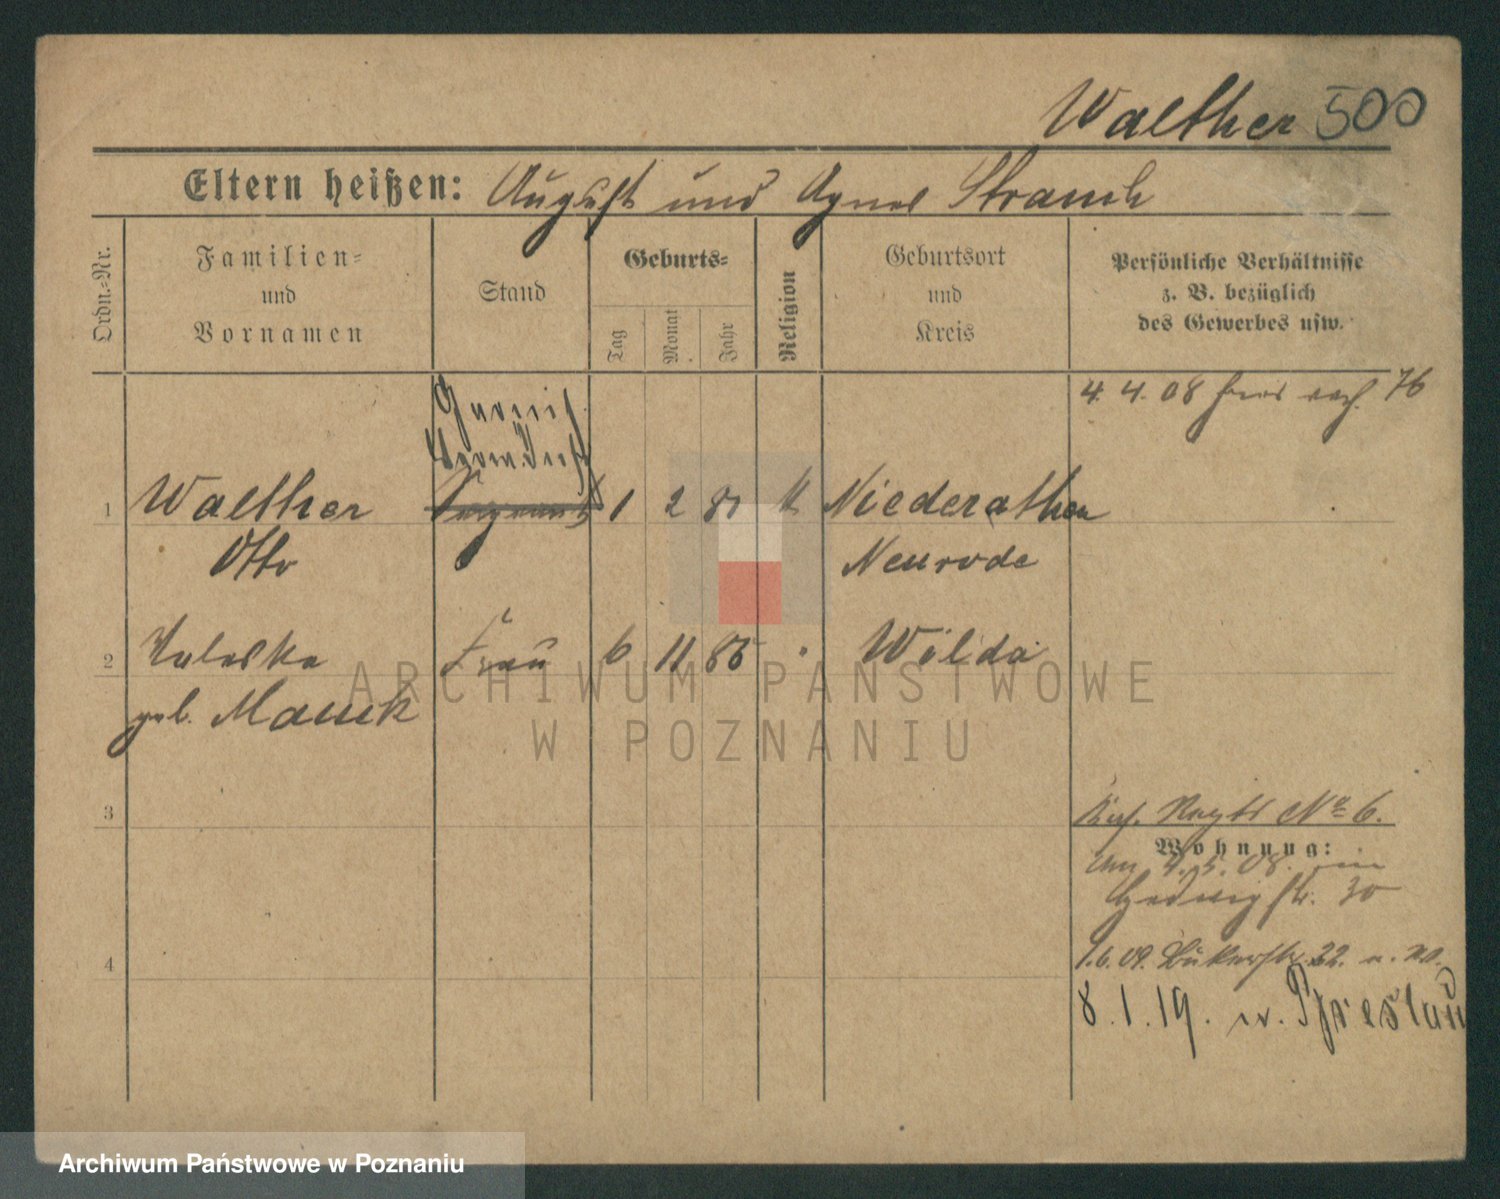 Walther 500
Eltern heißen: August und Agnes Strauch
Ordn.-Nr.
Familien-
und
Vornamen
Stand
Geburts-
Tag
Monat
Jahr
Religion
Geburtsort
und
Kreis
Persönliche Verhältnisse
z. B. bezüglich
des Gewerbes usw.
4. 4. 08 76
1 Walther Sergeant 1 2 81 k Niederathen
Otto Neurode
2 Valeska Frau 6 11 86 Wilda
geb. Mauck
3
Regts No 6.
Wohnung:
4. 5. 08.
Hedwigstr. 30
4
1. 6. 09. Bukerstr. 22.
8. 1. 19. n. Breslau
ARCHIWUM PAŃSTWOWE
W POZNANIU
Archiwum Państwowe w Poznaniu